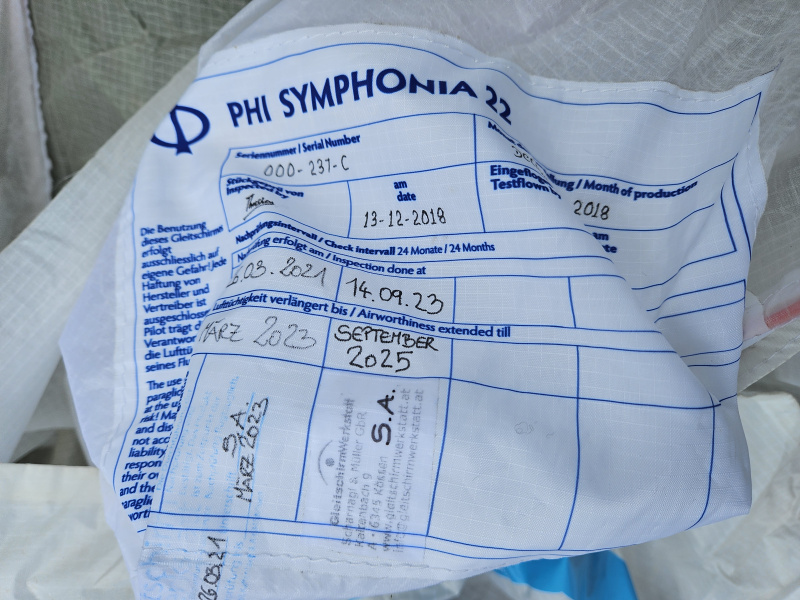 PHI SYMPHONIA 22
Seriennummer / Serial Number
000-237-C
/ Month of production
2018
Inspection von
am
date
13-12-2018
Testflown
am
Nachprüfungsintervall / Check intervall 24 Monate / 24 Months
erfolgt am / Inspection done at
.03.2021
14.09.23
Lufttüchtigkeit verlängert bis / Airworthiness extended till
MÄRZ 2023
SEPTEMBER
2025
Die Benutzung
dieses Gleitschirmes
erfolgt
ausschließlich auf
eigene Gefahr! Jede
Haftung von
Hersteller und
Vertreiber ist
ausgeschlossen
Pilot trägt d
Verantwor
die Lufttü
seines Flu
The use
paragli
at the u
risk! Ma
and dis
not acc
liability
respon
their o
and the
paragli
worthi
S.A.
MÄRZ 2023
26.03.21
GleitschirmWerkstatt
Scharnagl & Müller GbR
A - 6345 Kössen
www.gleitschirmwerkstatt.at
info@gleitschirmwerkstatt.at
S.A.